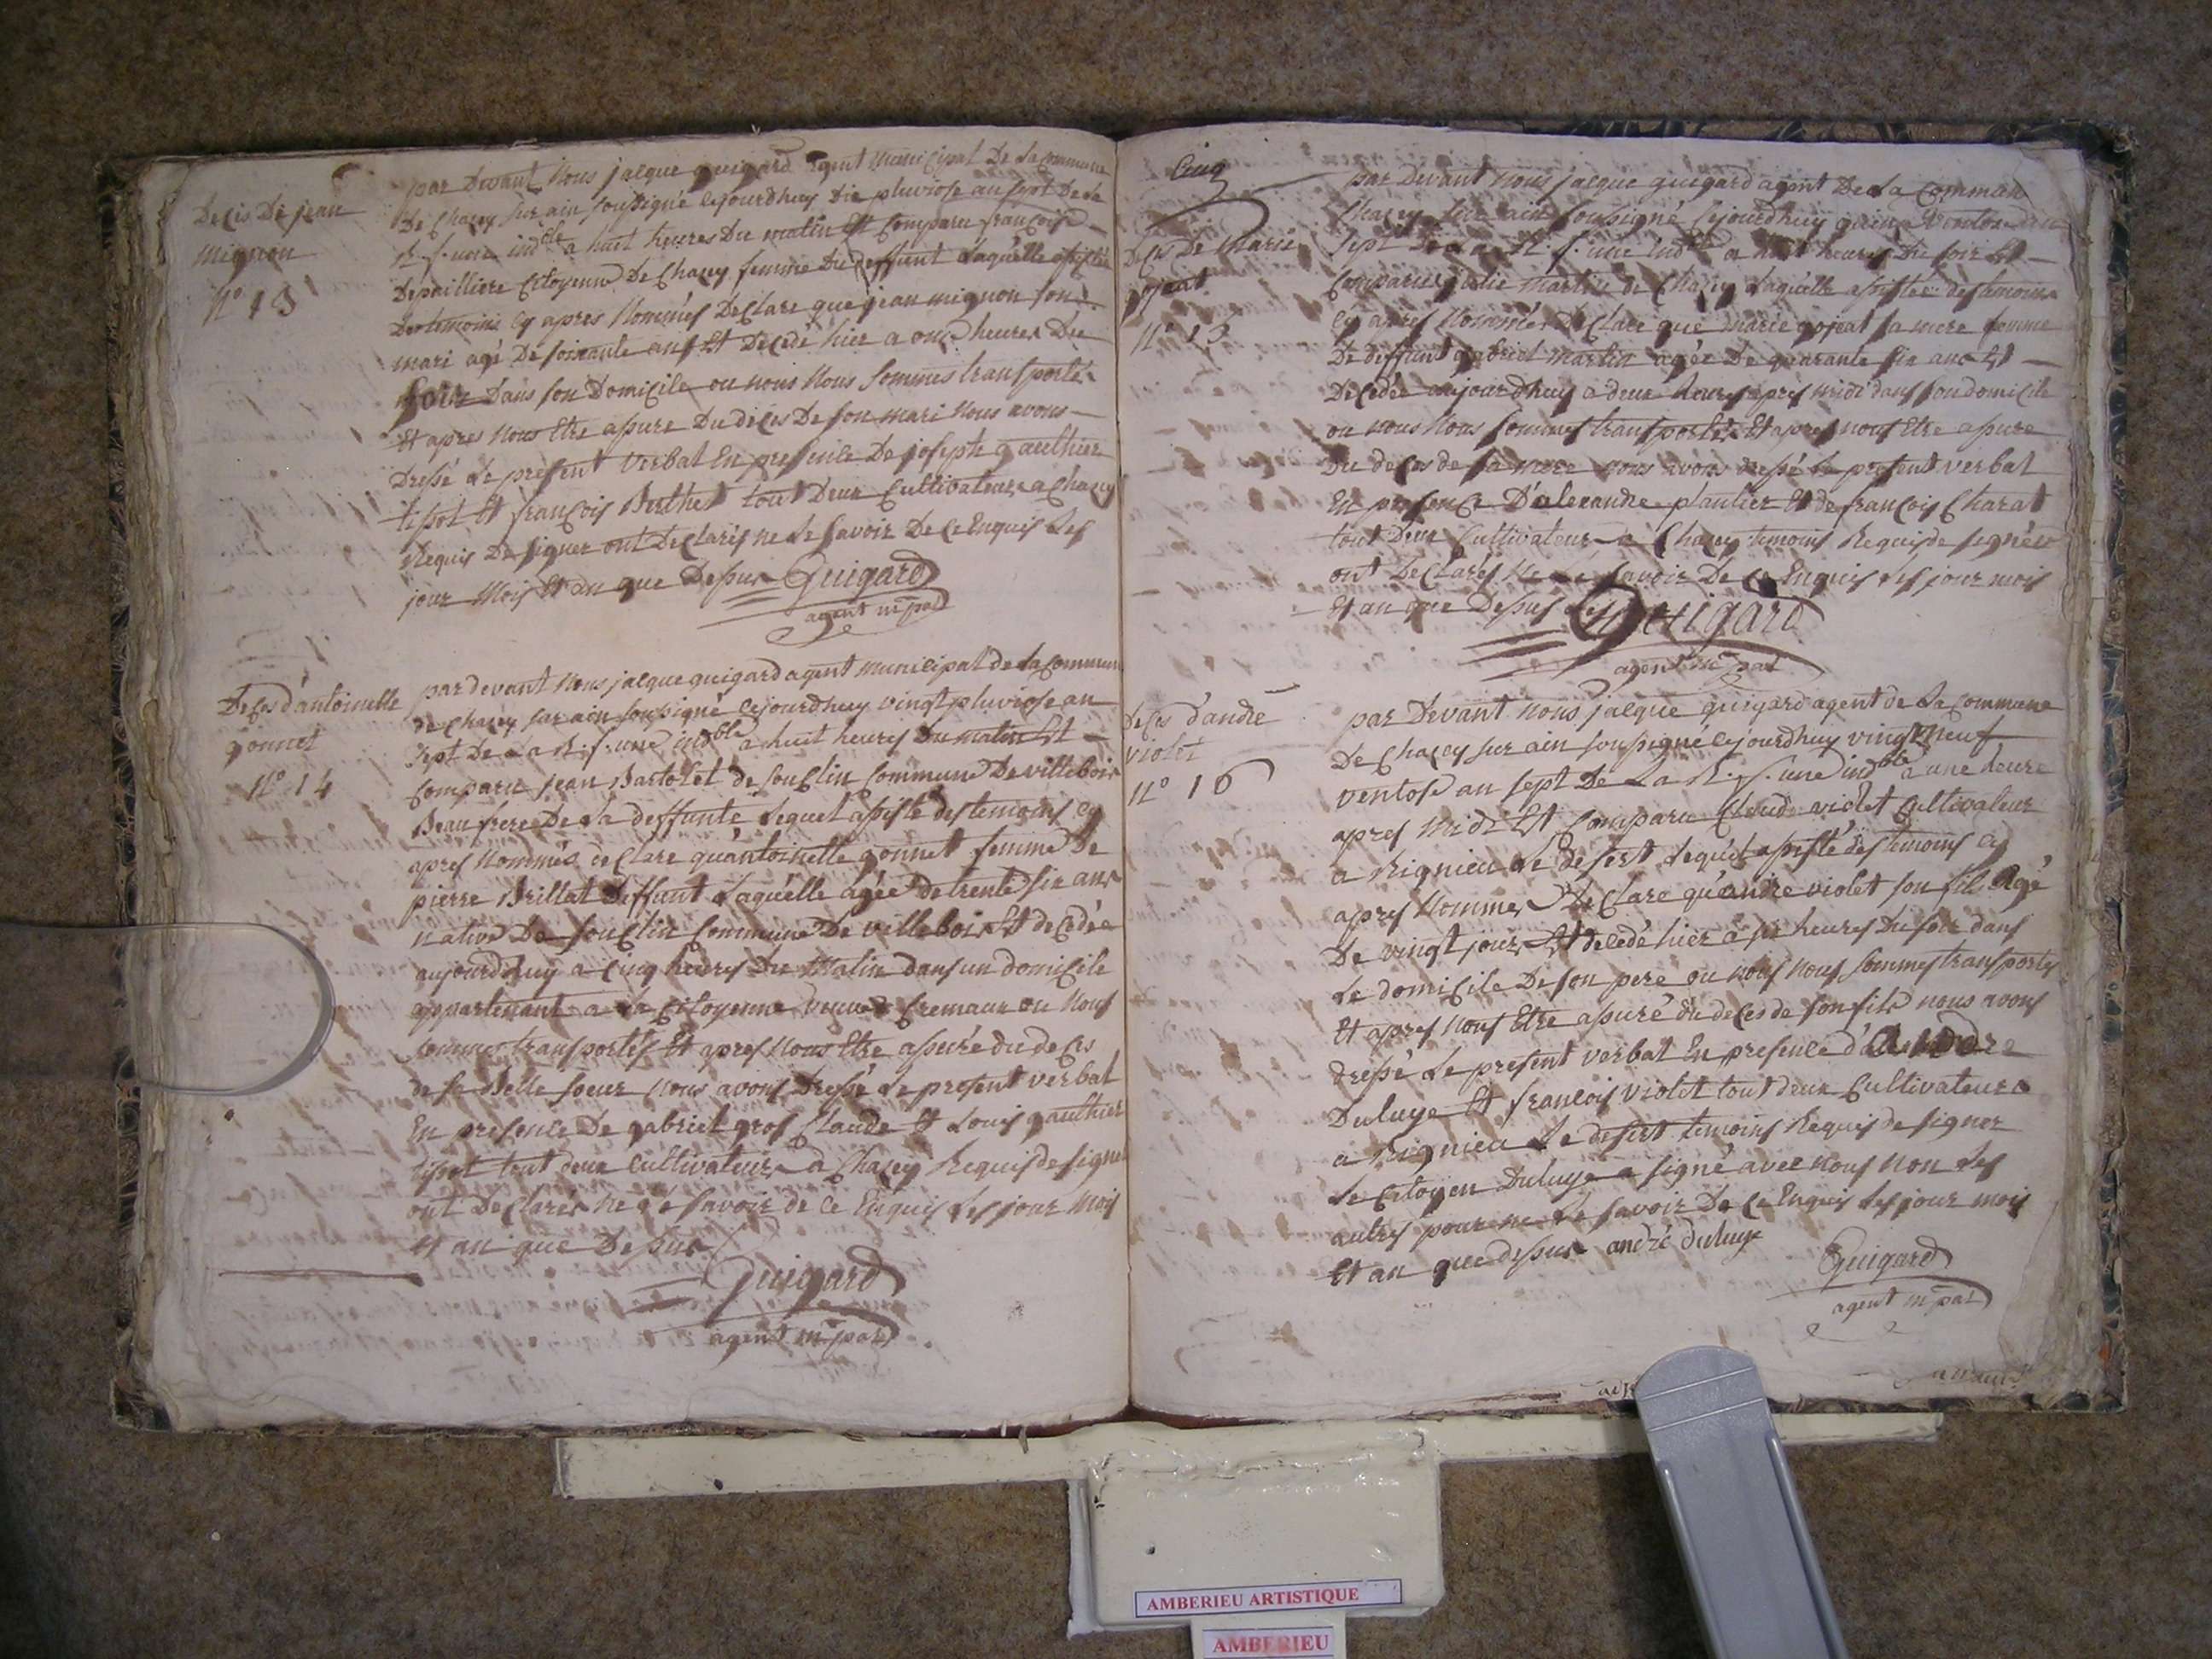 Deces De jean
mignon
N° 13
par Devant Nous jacque guigard agent municipal De La Commune
De Chazey sur ain soussigné cejourdhuy Dix pluviose an sept De La
R. f. une indble a huit heures Du matin Est Comparu françoise
Depailliere Citoyenne De Chazey femme Du deffunt Laquelle assistée
Des temoins cy apres Nommés Declare que jean mignon son
mari agé De soixante ans Est Decedé hier a onze heures Du
soir Dans son Domicile ou nous Nous sommes transportés
Et apres Nous Etre assuré Du deces De son mari Nous avons
Dressé Le present Verbat En presence De joseph gaulthier
tissot Et françois Berthet tout Deux Cultivateurs a Chazey
Requis De signer ont Declarés ne Le savoir De Ce Enquis Les
jour Mois Et an que Dessus Guigard
agent mpal
Deces d'antoinette
gonnet
N° 14
par devant Nous jacque guigard agent municipal de La Commune
de Chazey sur ain soussigné cejourdhuy vingt pluviose an
sept De La R. f. une indble a huit heures Du matin Est
Comparu jean Bartolet de souclin Commune De villebois
Beau frere De La deffunte Lequel assisté des temoins cy
apres Nommés declare qu'antoinette gonnet femme De
pierre Brillat Deffunt Laquelle agée de trente six ans
native De souclin Commune De villebois Est decedée
aujourdhuy a Cinq heures Du Matin Dans un domicile
appartenant a La Citoyenne veuve Cremaux ou Nous
sommes transportés Et apres Nous Etre assuré du deces
de sa Belle soeur Nous avons Dressé Le present verbat
En presence De gabriel gros Claude Et Louis gaulthier
tissot tout deux Cultivateurs a Chazey Requis de signer
ont Declarés ne Le savoir de Ce Enquis Les jour Mois
Et an que Dessus
Guigard
agent mpal
Cinq
Deces De Marie
gojeat
N° 15
par Devant Nous jacque guigard agent De La Commune
Chazey sur ain soussigné cejourdhuy quinze Ventose an
sept De La R. f. une indble a huit heures Du soir Est
Comparue julie martin de Chazey Laquelle assistée des temoins
cy apres Nommés Declare que marie gojeat sa mere femme
De deffunt gabriel martin agée De quarante six ans Est
Decedée aujourdhuy a deux heures apres midi dans son domicile
ou nous Nous sommes transportés Et apres nous Etre assuré
Du deces de sa mere nous avons dressé Le present verbat
En presence D'alexandre plantier Et de françois Charat
tout Deux Cultivateurs a Chazey temoins Requis de signer
ont Declarés Ne Le savoir De Ce Enquis Les jour mois
Et an que Dessus Guigard
agent mpal
deces d'andré
violet
N° 16
par Devant nous jacque guigard agent de La Commune
De Chazey sur ain soussigné cejourdhuy vingt Neuf
ventose an sept De La R. f. une indble a une heure
apres midi Est Comparu Claude violet Cultivateur
a Rignieu Le desert Lequel assisté des temoins cy
apres Nommés Declare qu'andre violet son fils Agé
De vingt jours Est decedé hier a six heures Du soir dans
Le domicile De son pere ou nous nous sommes transportés
Et apres Nous Etre assuré du deces de son fils nous avons
dressé Le present verbat En presence d'andre
Duluye Et françois violet tout deux Cultivateurs
a Rignieu Le desert temoins Requis de signer
Le Citoyen Duluye a signé avec nous Non Les
autres pour ne Le savoir De Ce Enquis Les jour mois
Et an que dessus andré duluye
Guigard
agent mpal
AMBERIEU ARTISTIQUE
AMBERIEU